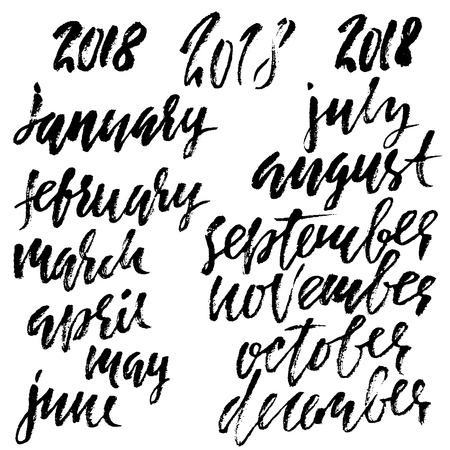 2018 2018 2018
january
february
march
april
may
june
july
august
september
november
october
december